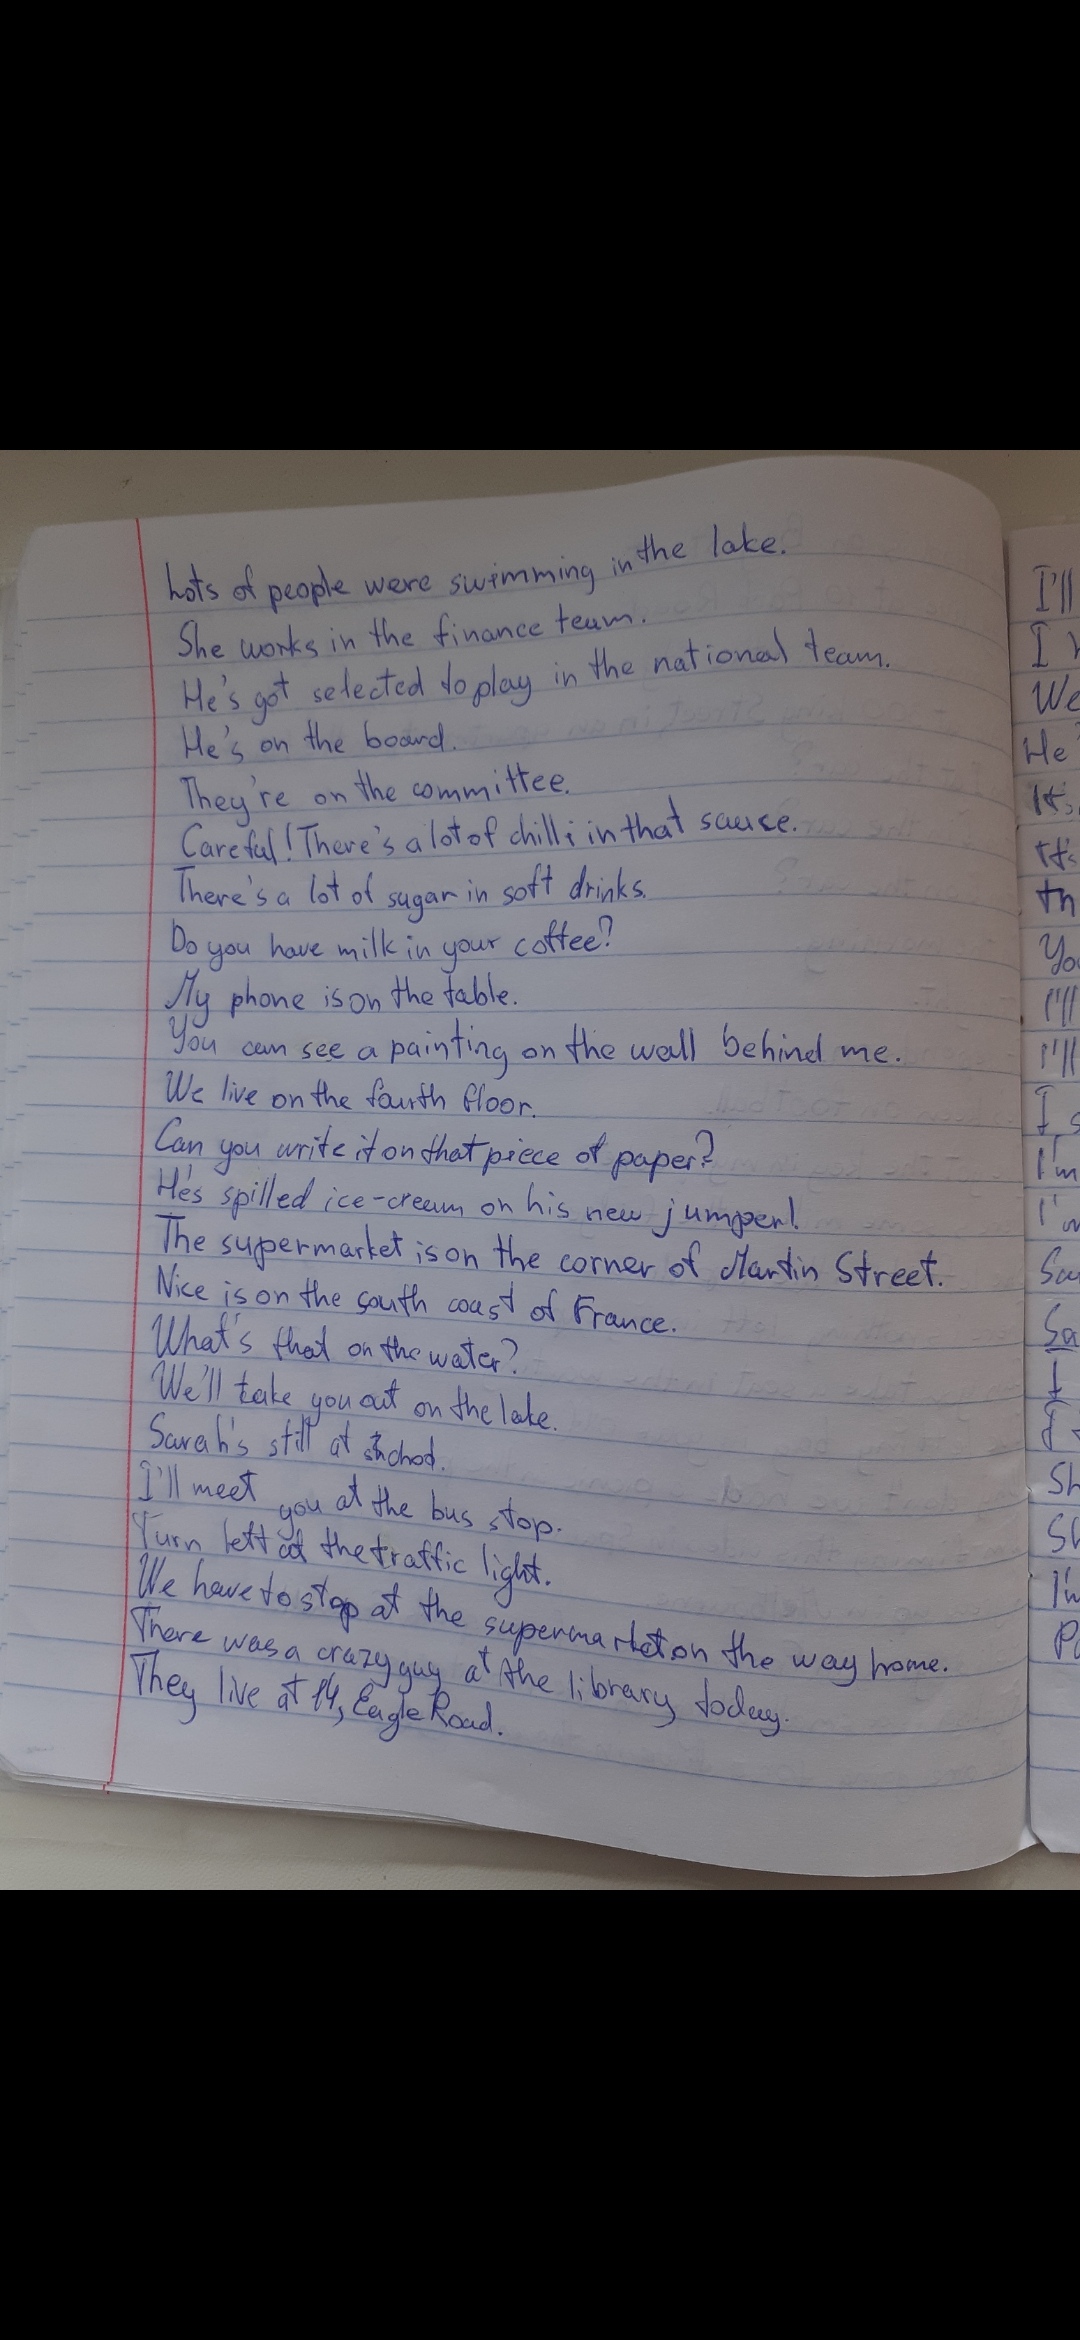 Lots of people were swimming in the lake.
She works in the finance team.
He's got selected to play in the national team.
He's on the board.
They're on the committee.
Careful! There's a lot of chilli in that sauce.
There's a lot of sugar in soft drinks.
Do you have milk in your coffee?
My phone is on the table.
You can see a painting on the wall behind me.
We live on the fourth floor.
Can you write it on that piece of paper?
He's spilled ice-cream on his new jumper!
The supermarket is on the corner of Martin Street.
Nice is on the south coast of France.
What's that on the water?
We'll take you out on the lake.
Sarah's still at
I'll meet you at the bus stop.
Turn left at the traffic light.
We have to stop at the supermarket on the way home.
There was a crazy guy at the library today.
They live at 14, Eagle Road.
I'll
I
We
He
It's
It's
th
You
I'll
I'll
I
I'm
I'm
Sa
Sa
I
I
Sh
Sh
I'm